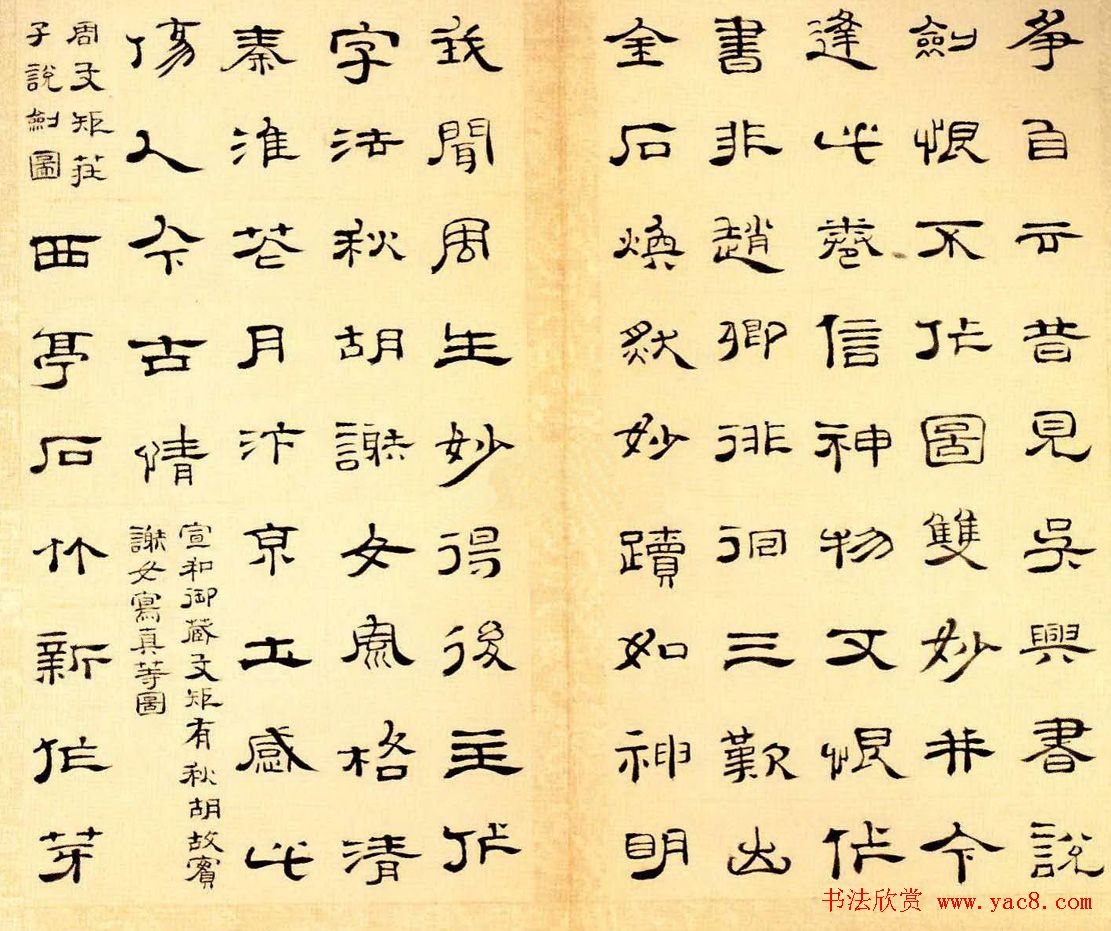 爭自云昔見吳興書說
劍恨不作圖雙妙并今
逢此卷信神物又恨作
書非趙卿徘徊三歎出
金石煥然妙蹟如神明
我聞周生妙得後主作
字法秋胡謝女風格清
秦淮花月汴京土感此
傷人今古情
宣和御藏文矩有秋胡故實
謝女寫真等圖
周文矩莊
子說劍圖
西亭石竹新作芽
书法欣赏 www.yac8.com